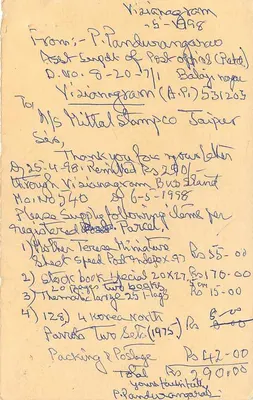 Vizianagram
-5-1998
From:- P. Pandurangarao
Asst. Supdt of Post offices (Retd)
D. No. 8-20-7/1 Balaji nagar
Vizianagram (A.P.) 531203
To M/s Mittal Stamp Co Jaipur
Sirs,
Thank you for your letter
D. 25-4-98. Remitted Rs 290/
through Vizianagram Bus Stand
Mo. No 540 D 6-5-1998
Please supply following items per
registered Parcel.
1) Mother Teresa Miniature
Sheet Speed Post Indepex 97 Rs 55-00
2) Stock book special 20x27 Rs 170-00
20 pages two books
3) Thematic large 25 flags Rs 15-00
4) 128) 4 Korea North
Panda Two Set. (1975) Rs 8-00
Packing & Postage Rs 42-00
Total Rs 290.00
Yours faithfully
P. Pandurangarao